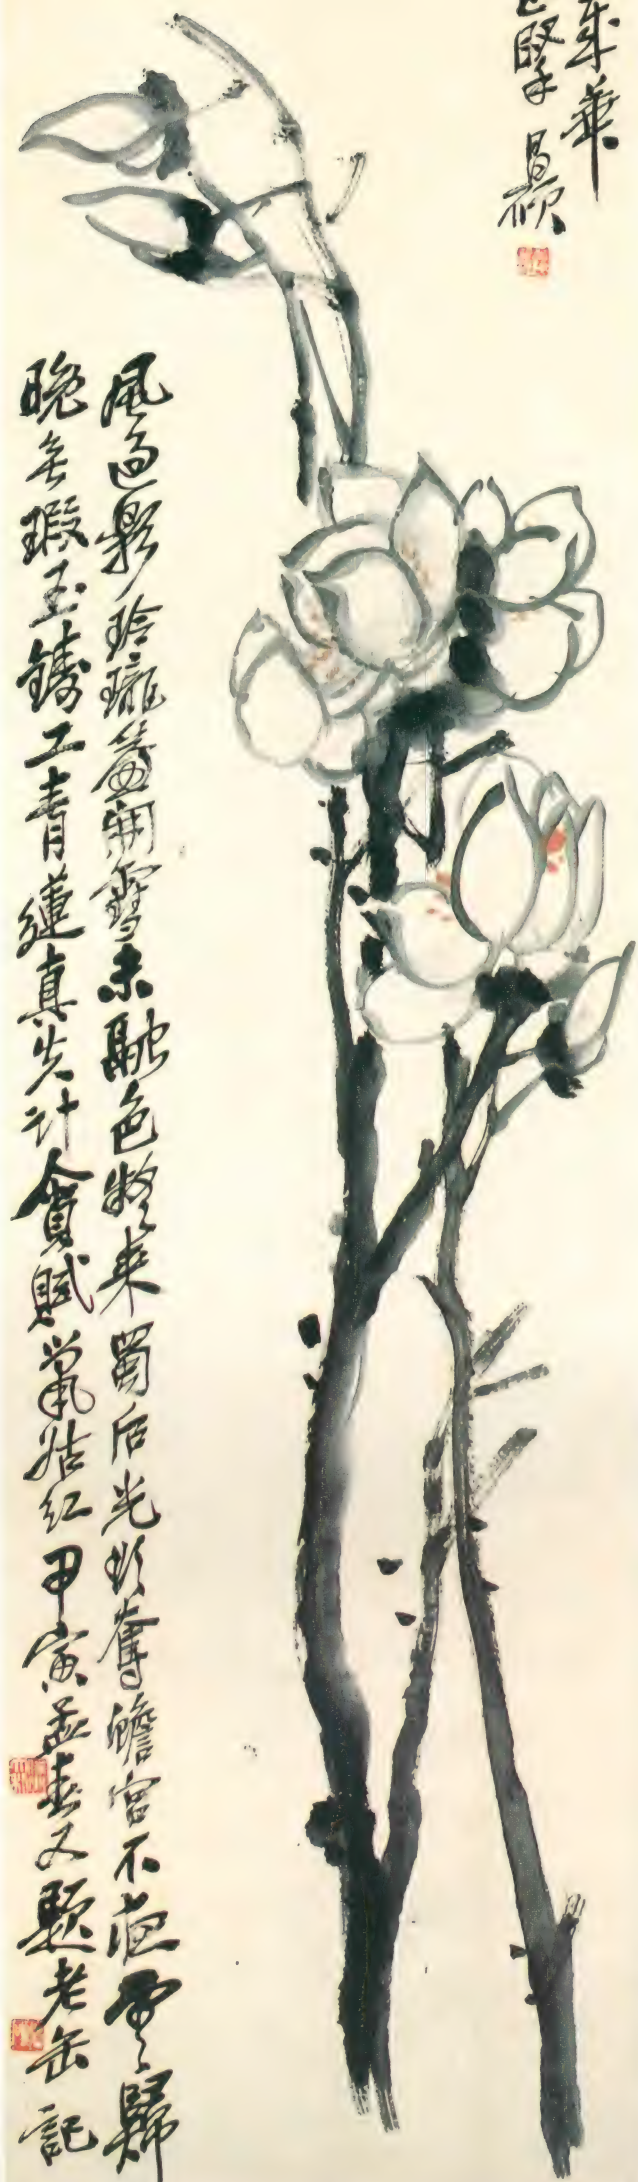 年華
昌碩
風過影玲瓏簷開雪未融色凝來蜀后光欲奪蟾宮不夜雲歸
晚無瑕玉鑄工青蓮真失計貪賦鼠姑紅甲寅孟春又題老缶記